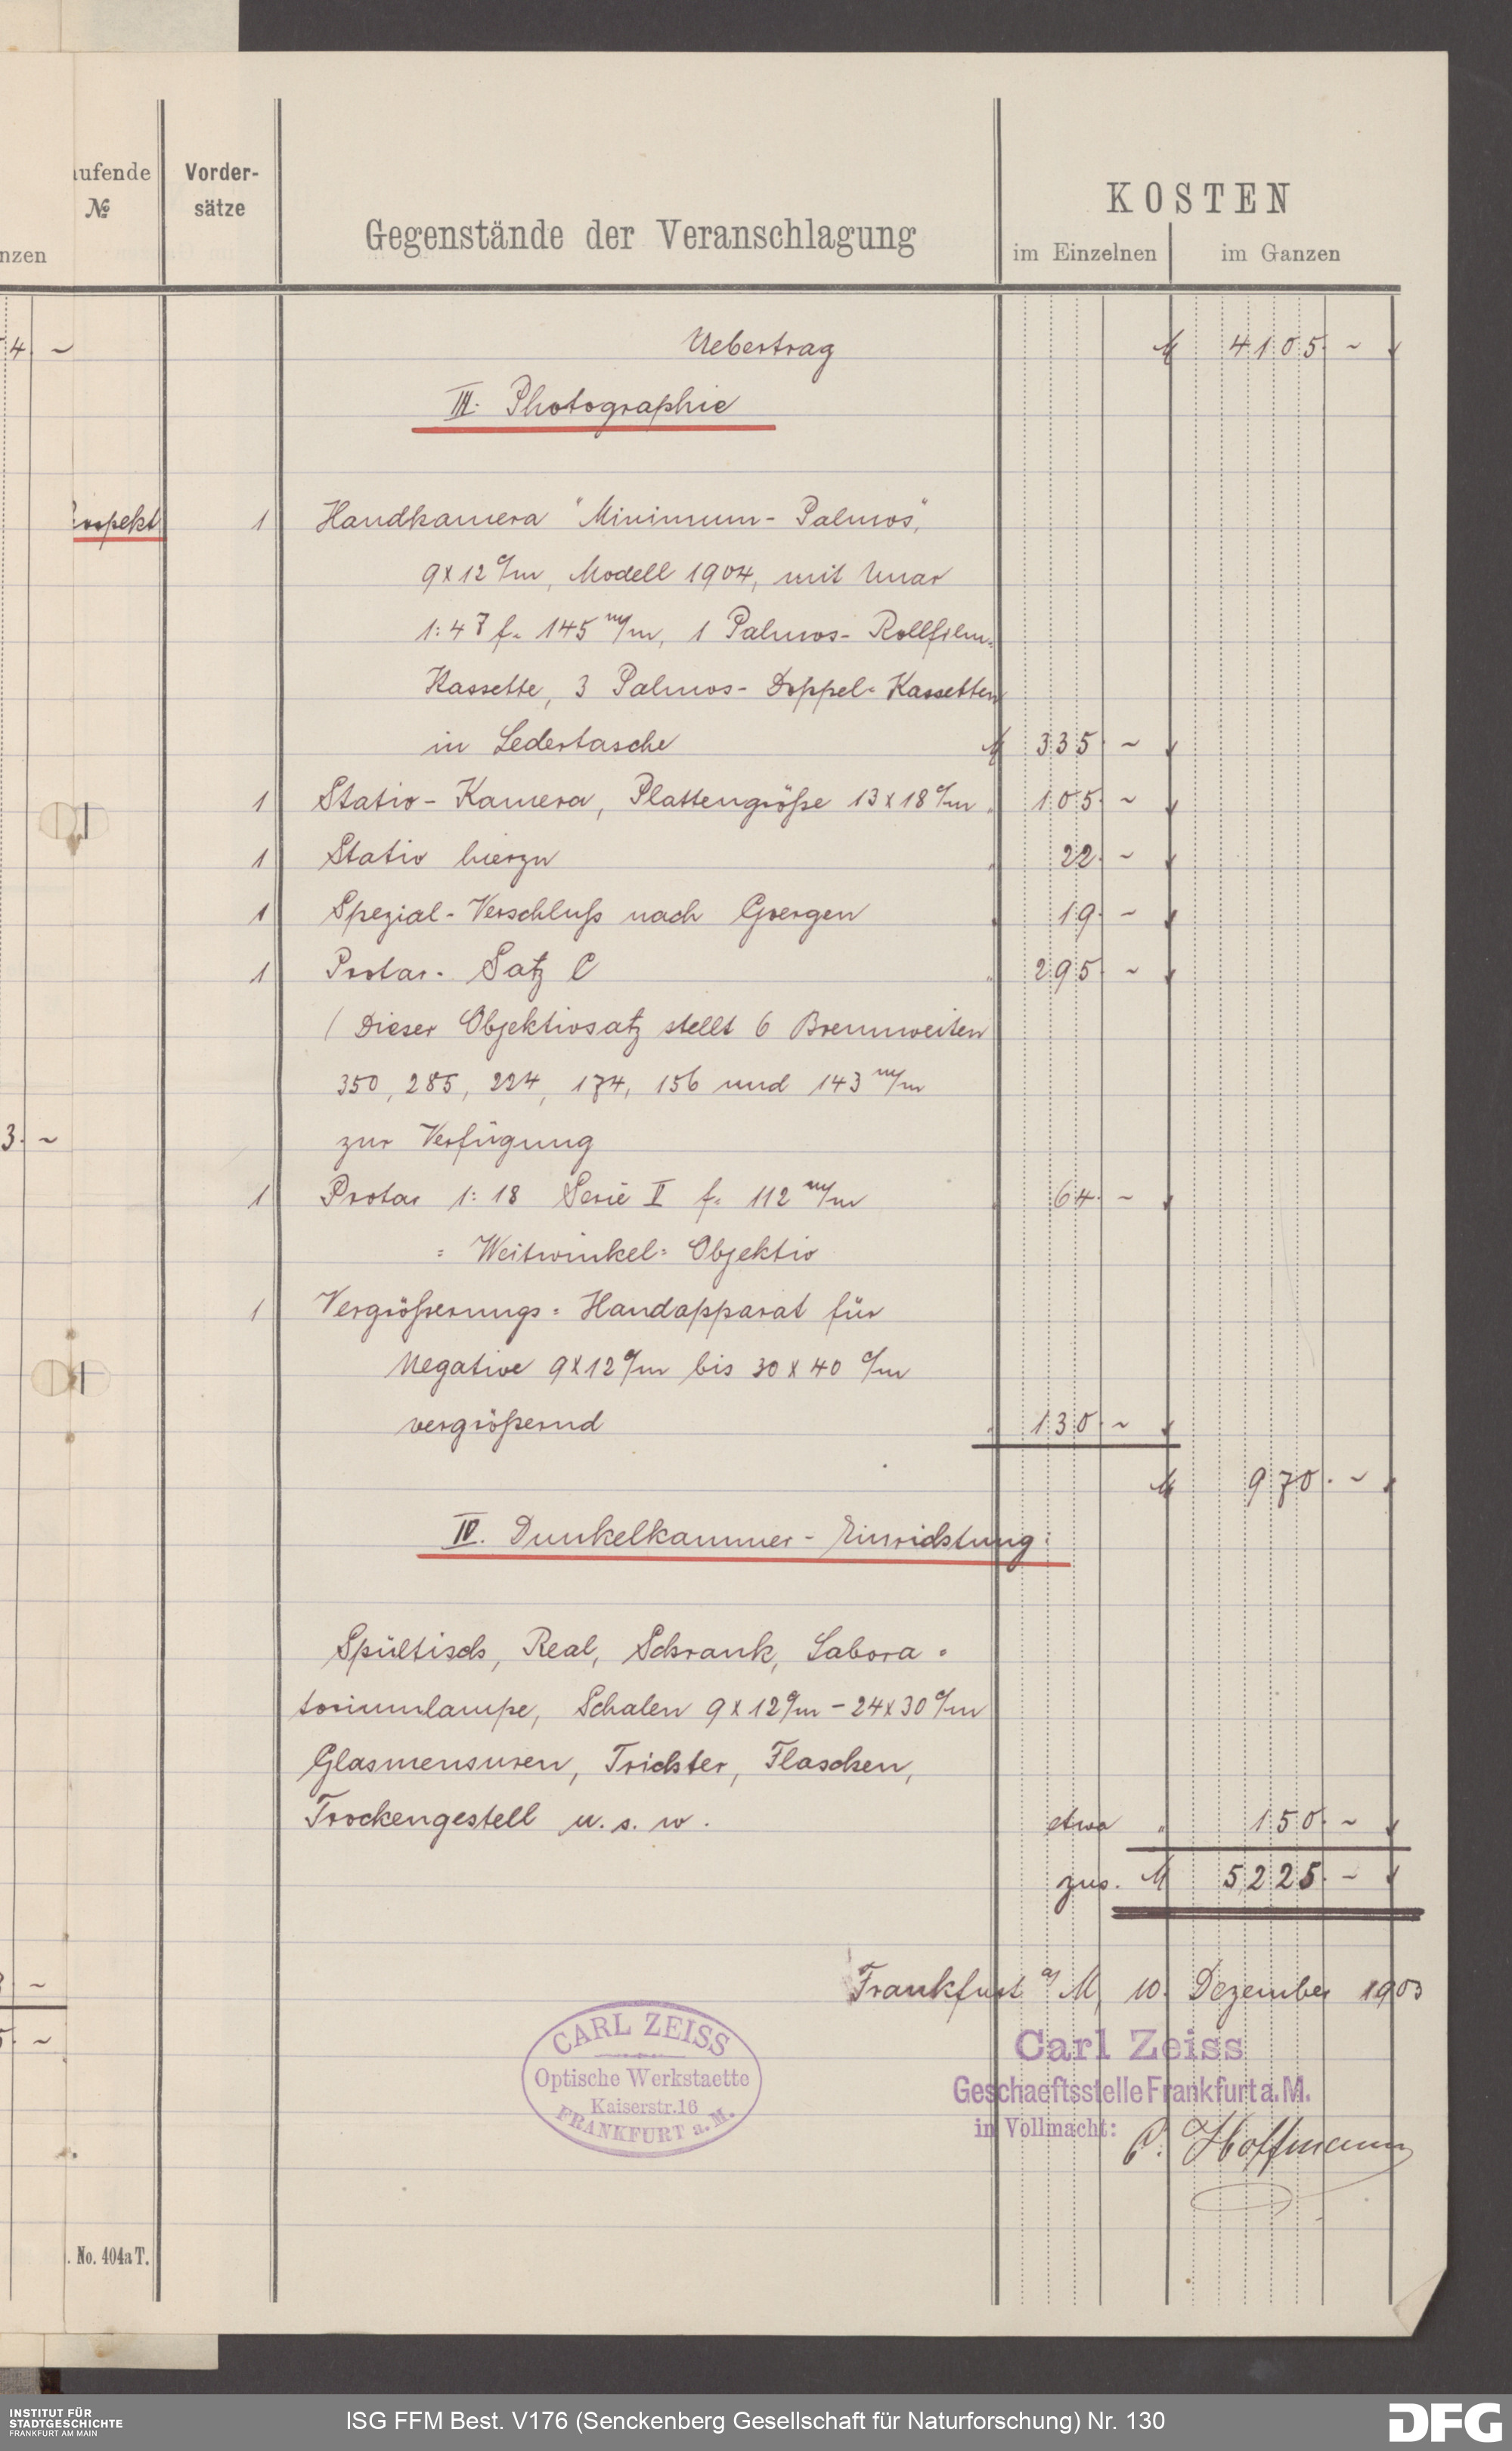 ufende
№
Vorder-
sätze
Gegenstände der Veranschlagung
KOSTEN
im Einzelnen
im Ganzen
nzen
Uebertrag M 4105. ~
4 ~
III. Photographie
1 Handkamera "Minimum-Palmos",
9x12 c/m, Modell 1904, mit Unar
1:4 7 f= 145 m/m, 1 Palmos-Rollfilm-
Kassette, 3 Palmos-Doppel-Kassetten
in Ledertasche M 335. ~
1 Stativ-Kamera, Plattengröße 13x18 c/m " 105. ~
1 Stativ hierzu " 22. ~
1 Spezial-Verschluß nach Goergen " 19. ~
1 Protar-Satz C " 295. ~
(Dieser Objektivsatz stellt 6 Brennweiten
350, 285, 224, 174, 156 und 143 m/m
zur Verfügung
3. ~
1 Protar 1:18 Serie V f= 112 m/m " 64. ~
= Weitwinkel=Objektiv
1 Vergrößerungs=Handapparat für
Negative 9x12 c/m bis 30x40 c/m
vergrößernd " 130. ~
M 970. ~
IV. Dunkelkammer-Einrichtung:
Spültisch, Real, Schrank, Labora=
toriumlampe, Schalen 9x12 c/m - 24x30 c/m
Glasmensuren, Trichter, Flaschen,
Trockengestell u. s. w. etwa " 150. ~
zus. M 5225. ~
Frankfurt a/M, 10. Dezember 1903
CARL ZEISS
Optische Werkstaette
Kaiserstr. 16
FRANKFURT a. M.
Carl Zeiss
Geschaeftsstelle Frankfurt a. M.
in Vollmacht: P. Hoffmann
. No. 404a T.
INSTITUT FÜR
STADTGESCHICHTE
FRANKFURT AM MAIN
ISG FFM Best. V176 (Senckenberg Gesellschaft für Naturforschung) Nr. 130
DFG